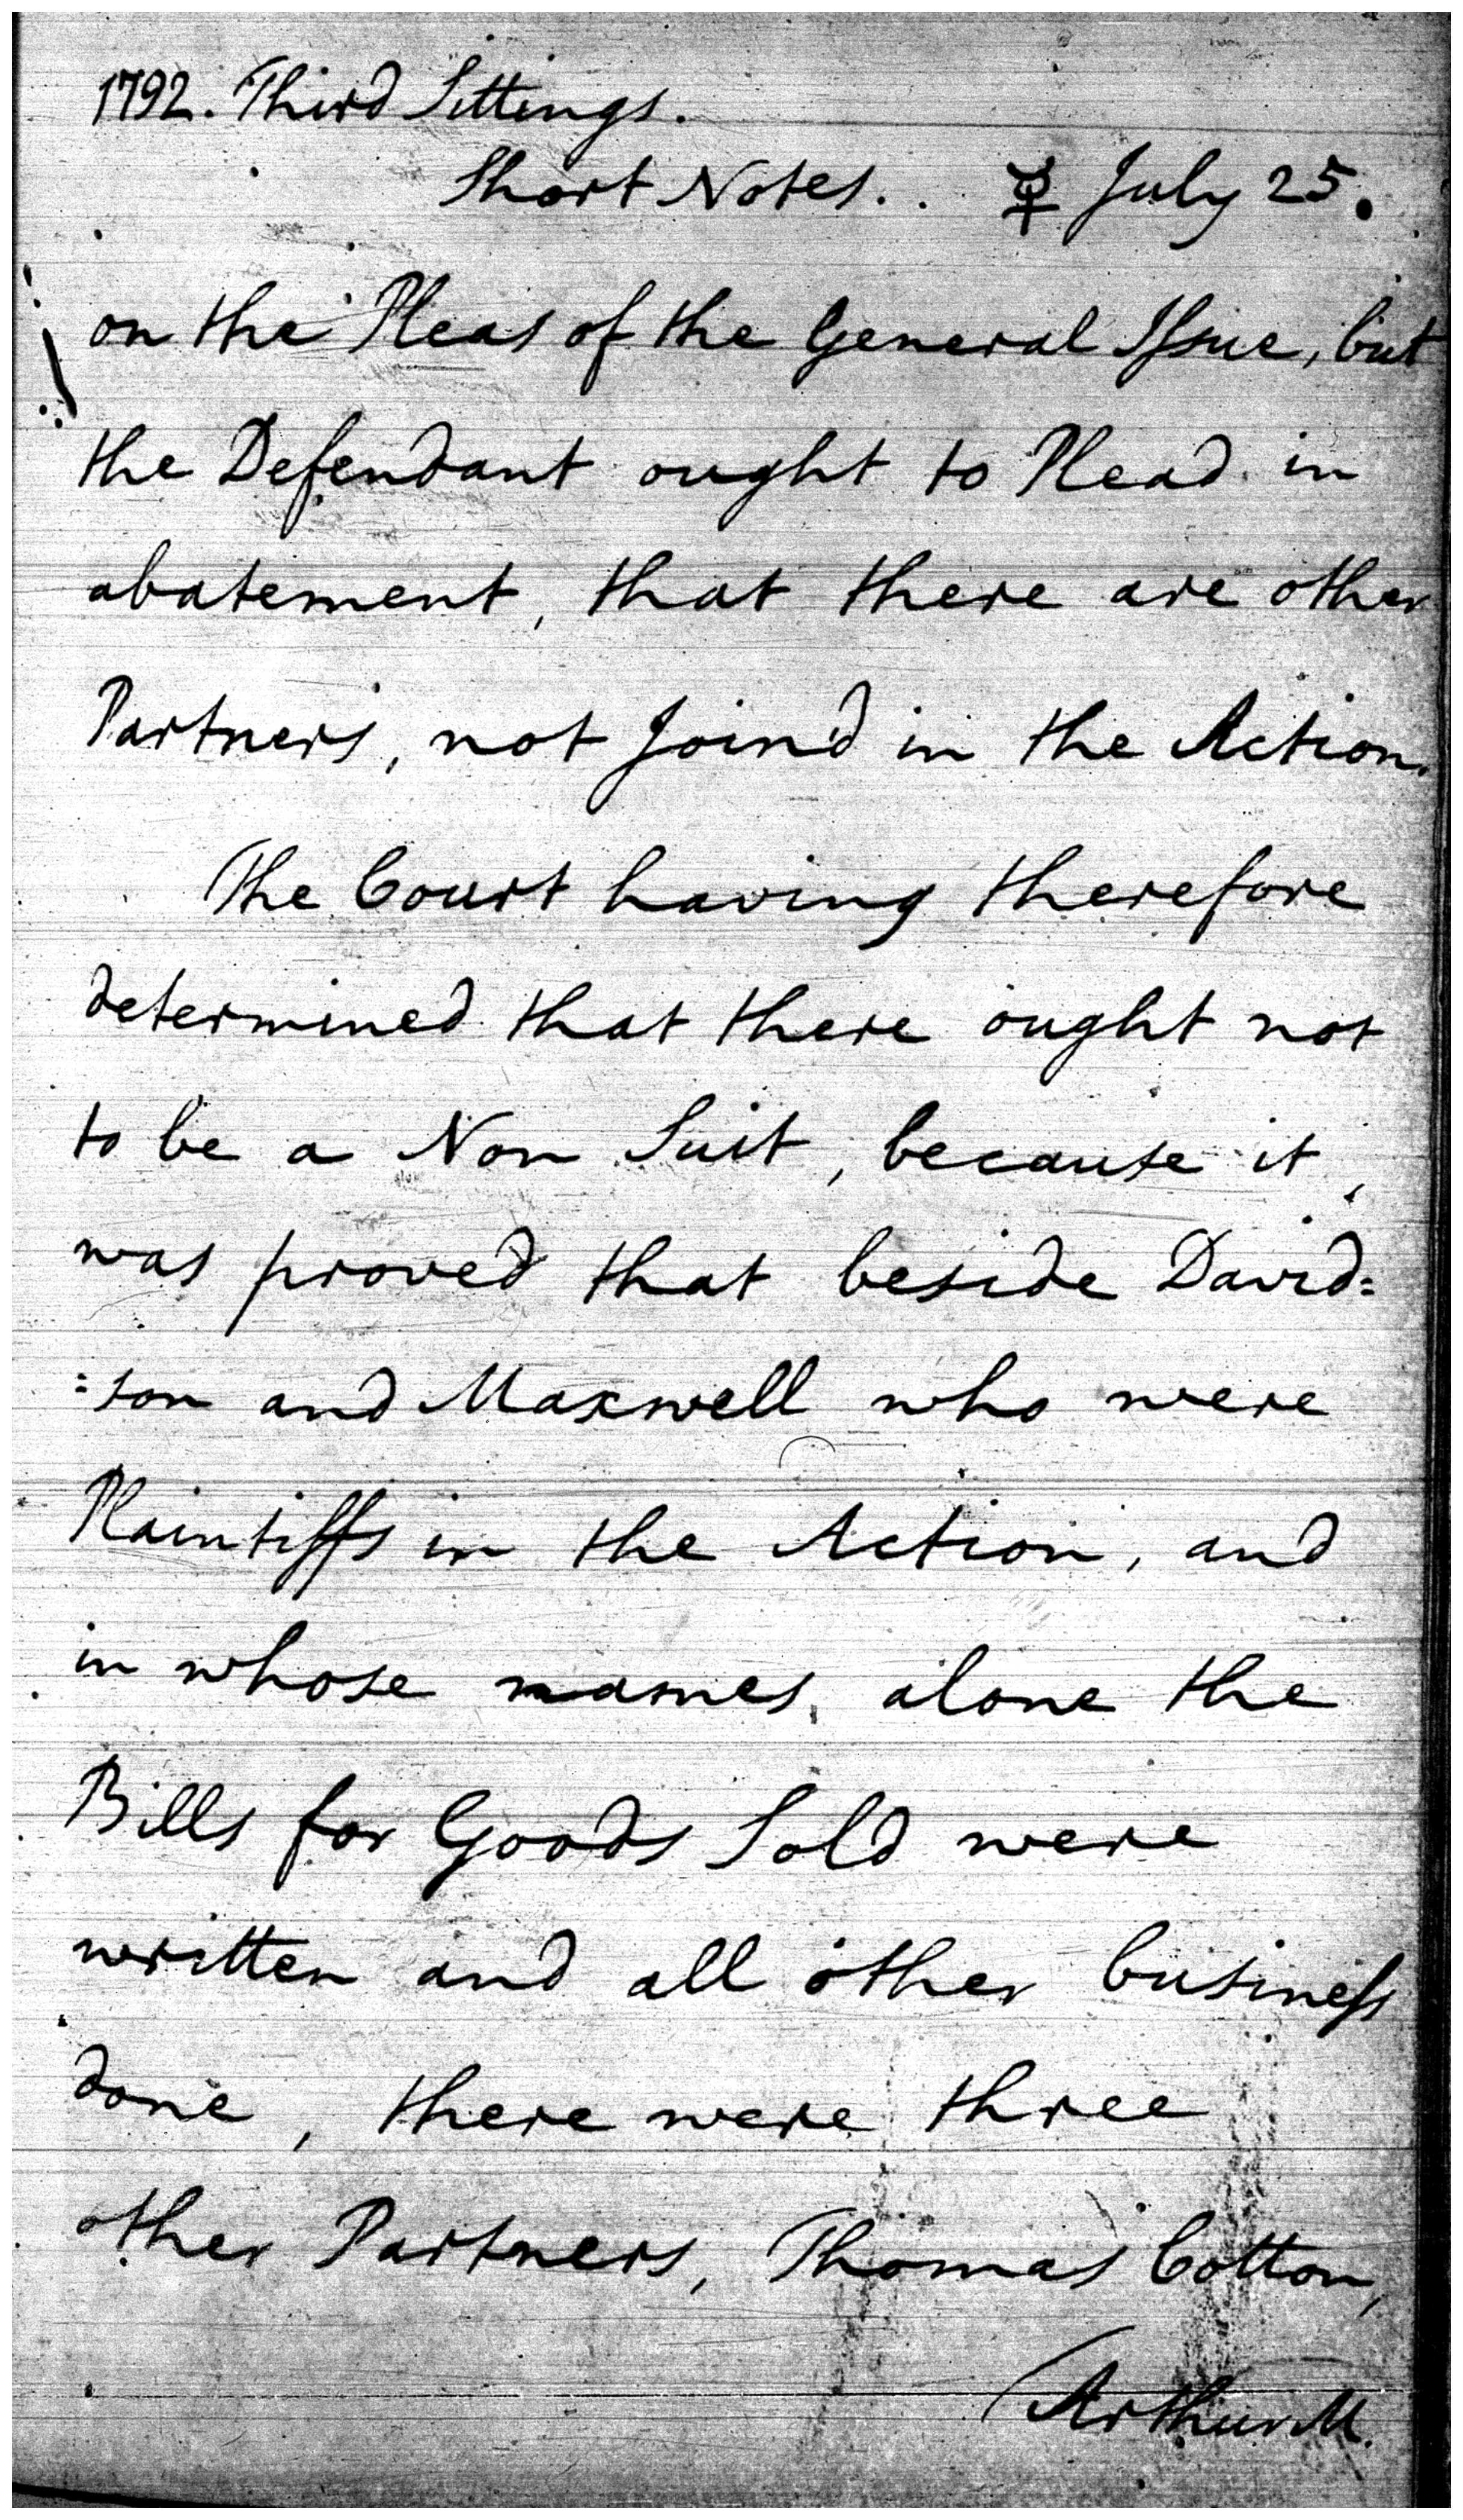 1792. Third Sittings.
Short Notes. . ☿ July 25.
on the Pleas of the General Issue, but
the Defendant ought to Plead in
abatement, that there are other
Partners, not Join'd in the Action.
The Court having therefore
determined that there ought not
to be a Non Suit, because it
was proved that beside David=
=son and Maxwell who were
Plaintiffs in the Action, and
in whose names, alone the
Bills for Goods Sold were
written and all other business
done, there were three
other Partners, Thomas Cotton,
Arthur M.